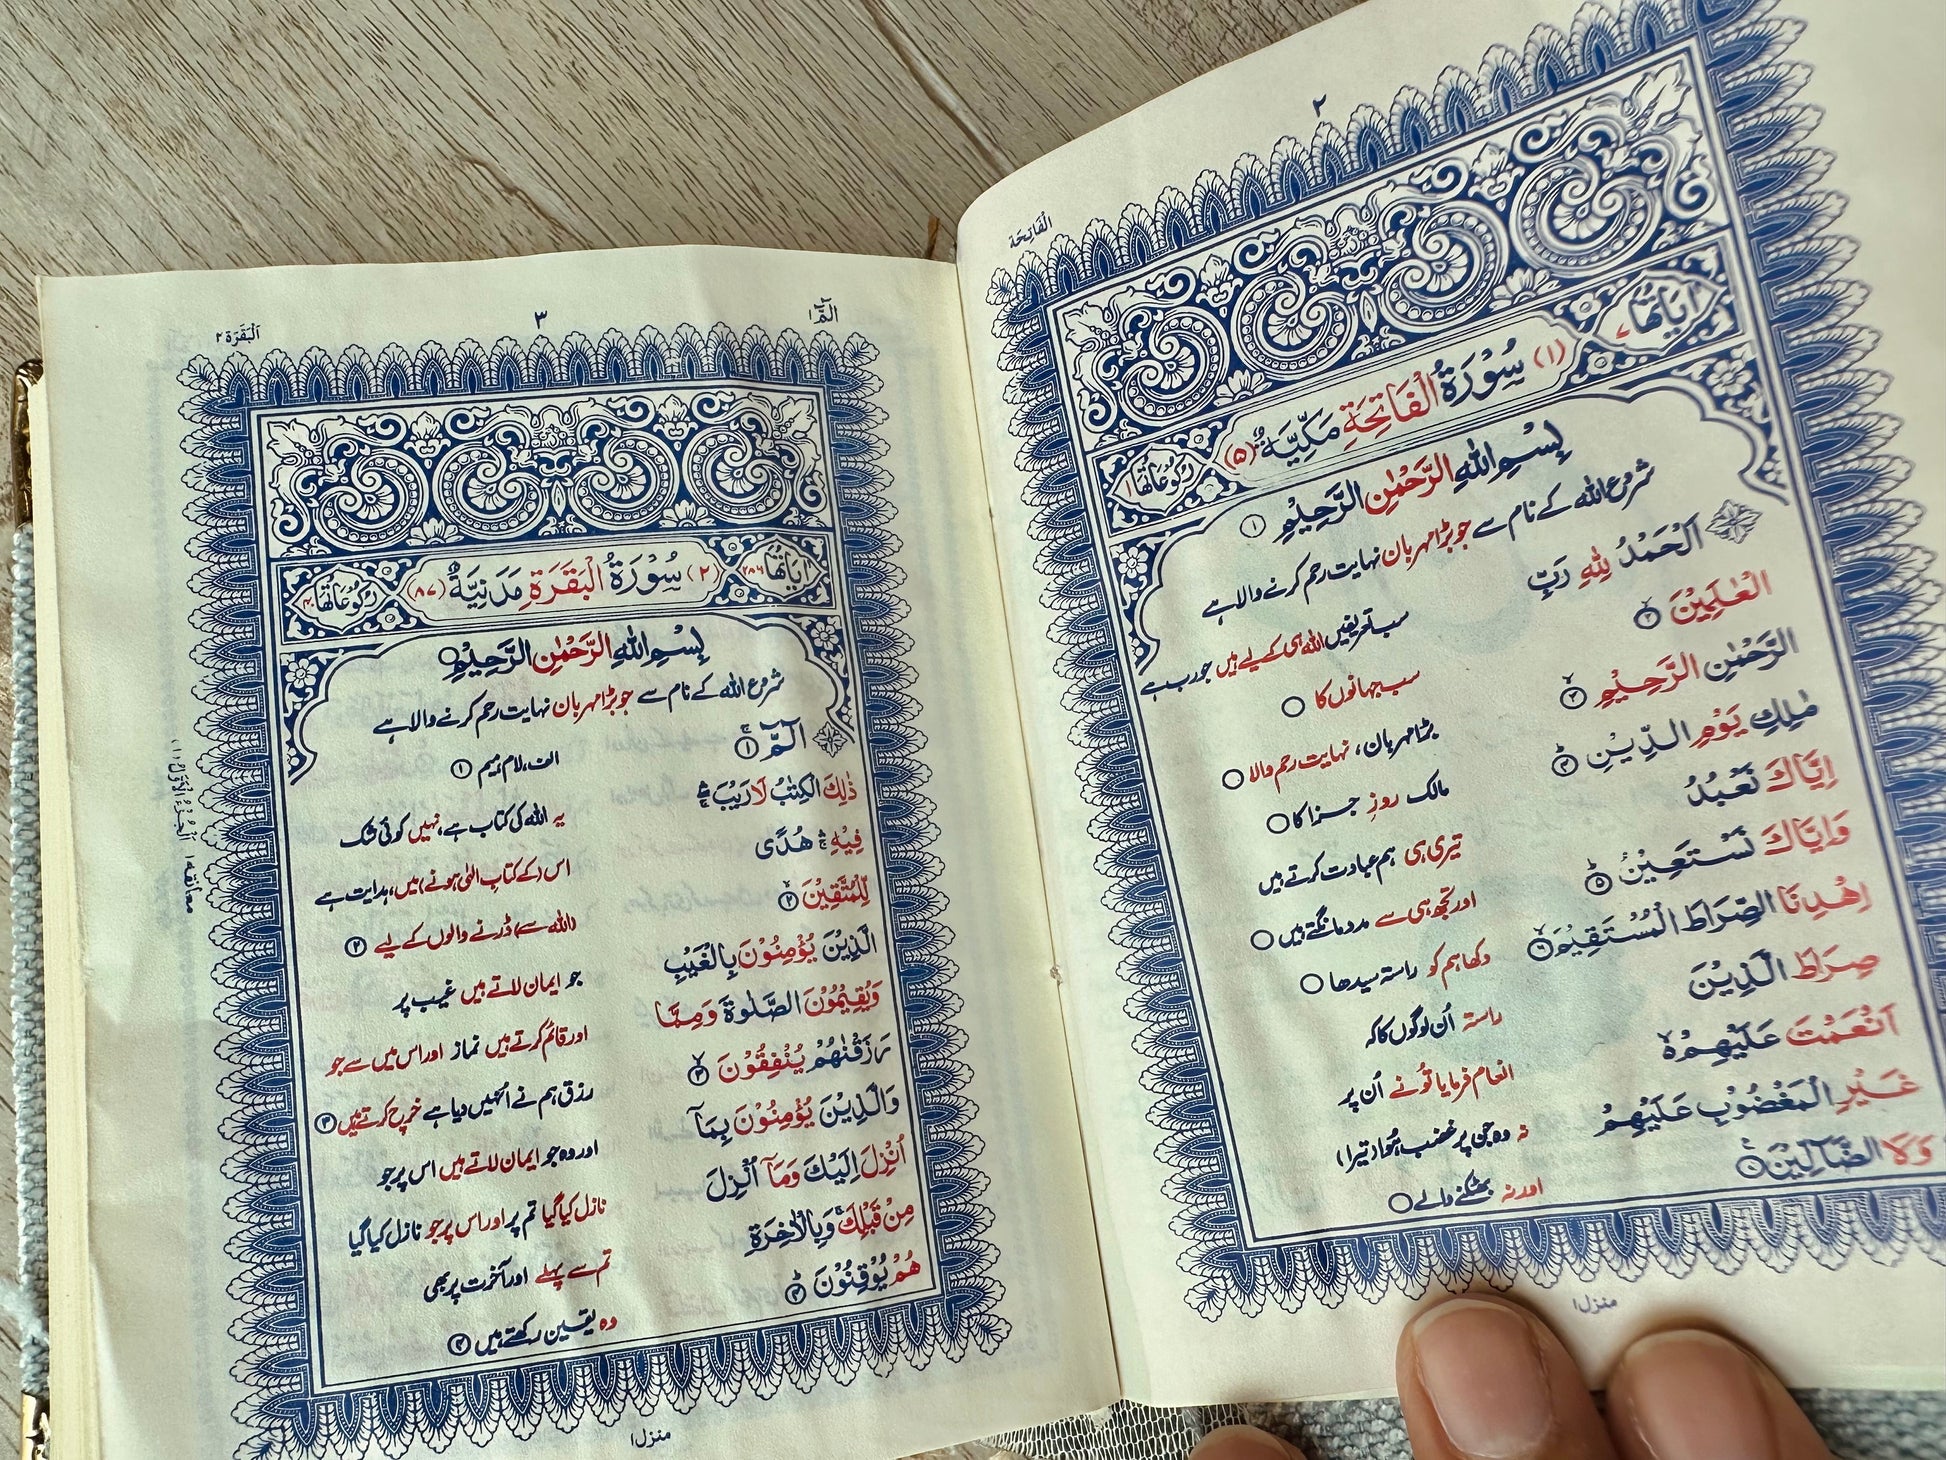 ٢
اَلْفَاتِحَة
اٰيَاتُهَا ٧
(١) سُوْرَةُ الْفَاتِحَةِ مَكِّيَّةٌ (٥)
رُكُوْعَاتُهَا ١
بِسْمِ اللّٰهِ الرَّحْمٰنِ الرَّحِيْمِ ١
شروع اللہ کے نام سے جو بڑا مہربان نہایت رحم کرنے والا ہے
اَلْحَمْدُ لِلّٰهِ رَبِّ
سب تعریفیں اللہ ہی کے لیے ہیں جو رب ہے
الْعٰلَمِيْنَ ٢
سب جہانوں کا
الرَّحْمٰنِ الرَّحِيْمِ ٢
بڑا مہربان، نہایت رحم والا
مٰلِكِ يَوْمِ الدِّيْنِ ٣
مالک روزِ جزا کا
اِيَّاكَ نَعْبُدُ
تیری ہی ہم عبادت کرتے ہیں
وَاِيَّاكَ نَسْتَعِيْنُ ٥
اور تجھ ہی سے مدد مانگتے ہیں
اِهْدِنَا الصِّرَاطَ الْمُسْتَقِيْمَ ٦
دکھا ہم کو راستہ سیدھا
صِرَاطَ الَّذِيْنَ
راستہ اُن لوگوں کا کہ
اَنْعَمْتَ عَلَيْهِمْ
انعام فرمایا تُو نے اُن پر
غَيْرِ الْمَغْضُوْبِ عَلَيْهِمْ
نہ وہ جن پر غضب ہُوا (تیرا)
وَلَا الضَّآلِّيْنَ
اور نہ بھٹکنے والے
منزل ١
الٓمّٓ ١
٣
اَلْبَقَرَة ٢
اٰيَاتُهَا ٢٨٦
(٢) سُوْرَةُ الْبَقَرَةِ مَدَنِيَّةٌ (٨٧)
رُكُوْعَاتُهَا ٤٠
بِسْمِ اللّٰهِ الرَّحْمٰنِ الرَّحِيْمِ
شروع اللہ کے نام سے جو بڑا مہربان نہایت رحم کرنے والا ہے
الٓمّٓ ١
الف، لام، میم ١
ذٰلِكَ الْكِتٰبُ لَا رَيْبَ
یہ اللہ کی کتاب ہے، نہیں کوئی شک
فِيْهِ هُدًى
اس (کے کتابِ الٰہی ہونے) میں، ہدایت ہے
لِّلْمُتَّقِيْنَ ٢
(اللہ سے) ڈرنے والوں کے لیے ٢
الَّذِيْنَ يُؤْمِنُوْنَ بِالْغَيْبِ
جو ایمان لاتے ہیں غیب پر
وَيُقِيْمُوْنَ الصَّلٰوةَ وَمِمَّا
اور قائم کرتے ہیں نماز اور اس میں سے جو
رَزَقْنٰهُمْ يُنْفِقُوْنَ ٣
رزق ہم نے اُنہیں دیا ہے خرچ کرتے ہیں ٣
وَالَّذِيْنَ يُؤْمِنُوْنَ بِمَآ
اور وہ جو ایمان لاتے ہیں اس پر جو
اُنْزِلَ اِلَيْكَ وَمَآ اُنْزِلَ
نازل کیا گیا تم پر اور اس پر جو نازل کیا گیا
مِنْ قَبْلِكَ وَبِالْاٰخِرَةِ
تم سے پہلے اور آخرت پر بھی
هُمْ يُوْقِنُوْنَ ٤
وہ یقین رکھتے ہیں ٤
اَلْجُزْءُ الْاَوَّلُ (١)
معانقه ١
منزل ١